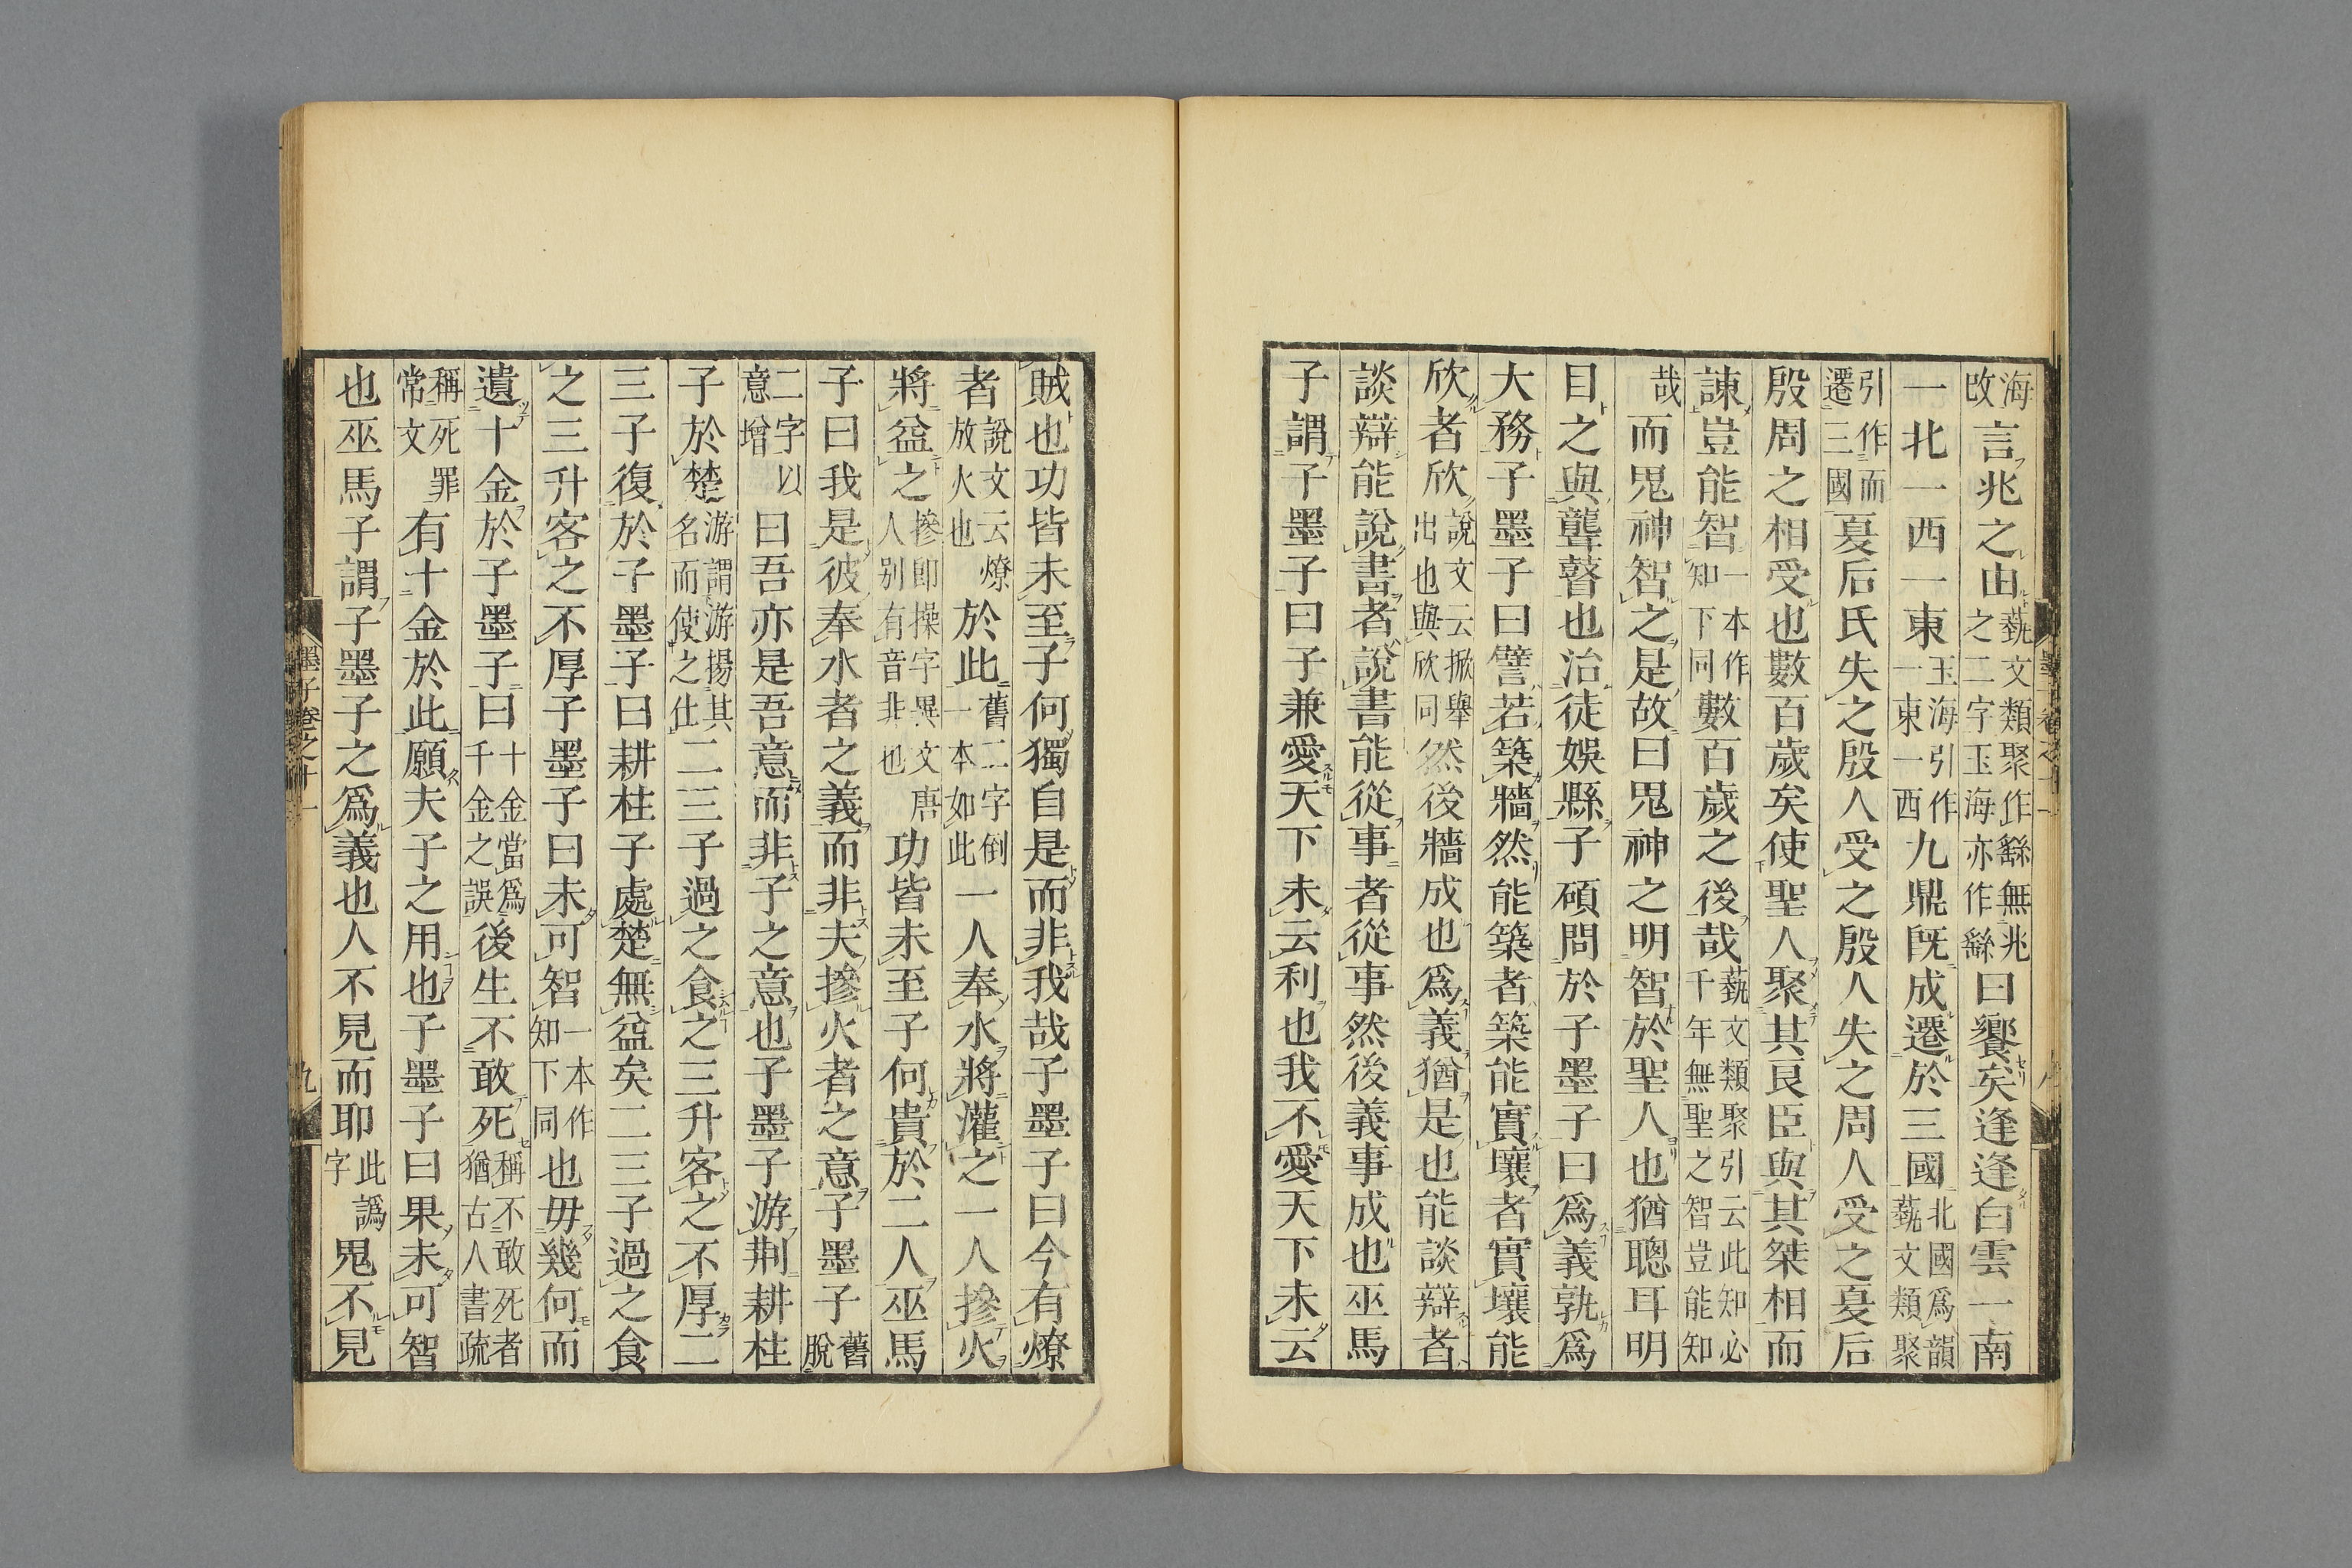 海改言兆之由藝文類聚作繇無兆之二字玉海亦作繇曰饗矣逢逢白雲一南
一北一西一東玉海引作一東一西九鼎旣成遷於三國北國爲韻藝文類聚
引作而遷三國夏后氏失之殷人受之殷人失之周人受之夏后
殷周之相受也數百歲矣使聖人聚其良臣與其桀相而
諫豈能智一本作知下同數百歲之後哉藝文類聚引云此知必千年無聖之智豈能知
哉而鬼神智之是故曰鬼神之明智於聖人也猶聰耳明
目之與聾瞽也治徒娛縣子碩問於子墨子曰爲義孰爲
大務子墨子曰譬若築牆然能築者築能實壤者實壤能
欣者欣說文云掀舉出也與欣同然後牆成也爲義猶是也能談辯者
談辯能說書者說書能從事者從事然後義事成也巫馬
子謂子墨子曰子兼愛天下未云利也我不愛天下未云
賊也功皆未至子何獨自是而非我哉子墨子曰今有燎
者說文云燎放火也於此舊二字倒一本如此一人奉水將灌之一人摻火
將益之摻卽操字異文唐人别有音非也功皆未至子何貴於二人巫馬
子曰我是彼奉水者之義而非夫摻火者之意子墨子舊脫
二字以意增曰吾亦是吾意而非子之意也子墨子游荆耕柱
子於楚游謂游揚其名而使之仕二三子過之食之三升客之不厚二
三子復於子墨子曰耕柱子處楚無益矣二三子過之食
之三升客之不厚子墨子曰未可智一本作知下同也毋幾何而
遺十金於子墨子曰十金當爲千金之誤後生不敢死稱不敢死者猶古人書疏
稱死罪常文有十金於此願夫子之用也子墨子曰果未可智
也巫馬子謂子墨子之爲義也人不見而耶此字譌鬼不見
墨子卷之十一
九